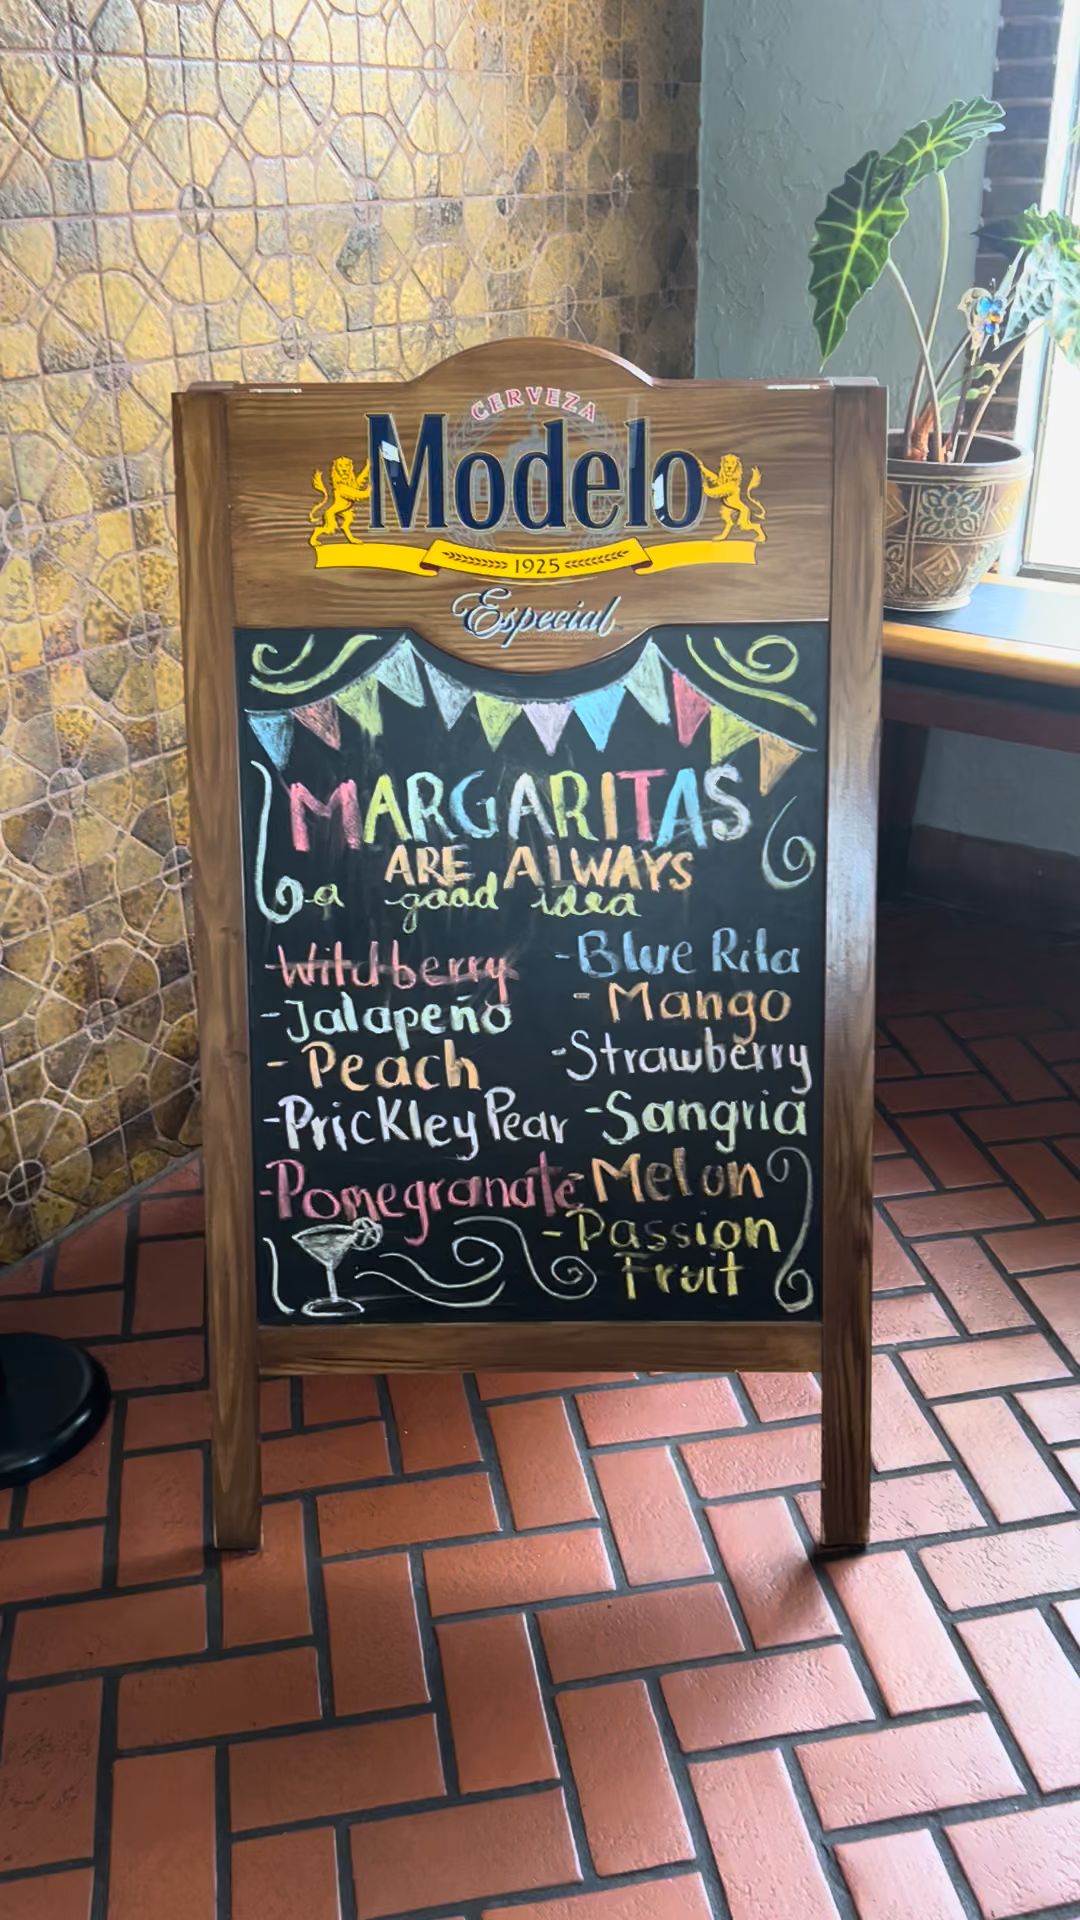 CERVEZA
Modelo
1925
Especial
MARGARITAS
ARE ALWAYS
a good idea
-Wildberry
-Jalapeño
- Peach
-Prickley Pear
-Pomegranate
-Blue Rita
- Mango
-Strawberry
-Sangria
Melon
-Passion
Fruit